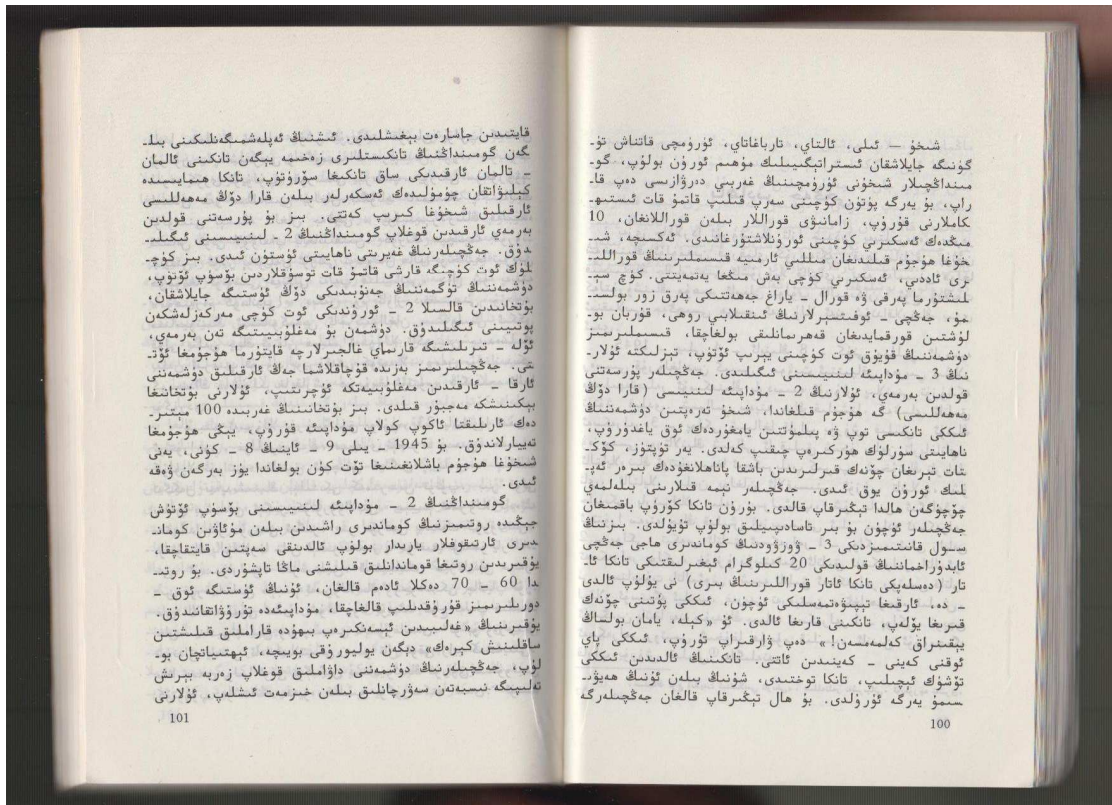 شىخۇ — ئىلى، ئالتاي، تارباغاتاي، ئۈرۈمچى قاتناش تۈ-
گۈنىگە جايلاشقان ئىستراتېگىيىلىك مۇھىم ئورۇن بولۇپ، گو-
مىنداڭچىلار شىخۇنى ئۈرۈمچىنىڭ غەربىي دەرۋازىسى دەپ قا-
راپ، بۇ يەرگە پۈتۈن كۈچىنى سەرپ قىلىپ قاتمۇ قات ئىستىھ-
كاملارنى قۇرۇپ، زامانىۋى قوراللار بىلەن قوراللانغان، 10
مىڭدەك ئەسكىرىي كۈچىنى ئورۇنلاشتۇرغانىدى. ئەكسىچە، شى-
خۇغا ھۇجۇم قىلىدىغان مىللىي ئارمىيە قىسىملىرىنىڭ قوراللى-
رى ئاددىي، ئەسكىرىي كۈچى بەش مىڭغا يەتمەيتتى. كۈچ سې-
لىشتۇرما پەرقى ۋە قورال - ياراغ جەھەتتىكى پەرق زور بولسى-
مۇ، جەڭچى - ئوفىتسېرلارنىڭ ئىنقىلابىي روھى، قۇربان بو-
لۇشتىن قورقمايدىغان قەھرىمانلىقى بولغاچقا، قىسىملىرىمىز
دۈشمەننىڭ قويۇق ئوت كۈچىنى يېرىپ ئۆتۈپ، تېزلىكتە ئۇلار-
نىڭ 3 - مۇداپىئە لىنىيىسىنى ئىگىلىدى. جەڭچىلەر پۇرسەتنى
قولدىن بەرمەي، ئۇلارنىڭ 2 - مۇداپىئە لىنىيىسى (قارا دۆڭ
مەھەللىسى) گە ھۇجۇم قىلغاندا، شىخۇ تەرەپتىن دۈشمەننىڭ
ئىككى تانكىسى توپ ۋە پىلىمۇتتىن يامغۇردەك ئوق ياغدۇرۇپ،
ناھايىتى سۈرلۈك ھۆركىرەپ چىقىپ كەلدى. يەر تۈپتۈز، كۆك-
تات تېرىغان چۆنەك قىرلىرىدىن باشقا پاناھلانغۇدەك بىرەر ئەپ-
لىك ئورۇن يوق ئىدى. جەڭچىلەر نېمە قىلارىنى بىلەلمەي
چۆچۈگەن ھالدا تېڭىرقاپ قالدى. بۇرۇن تانكا كۆرۈپ باقمىغان
جەڭچىلەر ئۈچۈن بۇ بىر تاسادىپىيلىق بولۇپ تۇيۇلدى. بىزنىڭ
سول قانىتىمىزدىكى 3 - ۋزۋودنىڭ كوماندىرى ھاجى جەڭچى
ئابدۇراخماننىڭ قولىدىكى 20 كىلوگرام ئېغىرلىقتىكى تانكا ئا-
تار (دەسلەپكى تانكا ئاتار قوراللىرىنىڭ بىرى) نى يۇلۇپ ئالدى
- دە، ئارقىغا تېپىۋەتمەسلىكى ئۈچۈن، ئىككى پۇتىنى چۆنەك
قىرىغا يۆلەپ، تانكىنى قارىغا ئالدى. ئۇ «كېلە، يامان بولساڭ
يېقىنراق كەلمەمسەن!» دەپ ۋارقىراپ تۇرۇپ، ئىككى پاي
ئوقنى كەينى - كەينىدىن ئاتتى. تانكىنىڭ ئالدىدىن ئىككى
تۆشۈك ئېچىلىپ، تانكا توختىدى، شۇنىڭ بىلەن ئۇنىڭ ھەيۋى-
سىمۇ يەرگە ئۇرۇلدى. بۇ ھال تېڭىرقاپ قالغان جەڭچىلەرگە
100
قايتىدىن جاسارەت بېغىشلىدى. ئىشنىڭ ئەپلەشمىگەنلىكىنى بىل-
گەن گومىنداڭنىڭ تانكىستلىرى زەخمە يېگەن تانكىنى ئالمان
- تالمان ئارقىدىكى ساق تانكىغا سۆرۈتۈپ، تانكا ھىمايىسىدە
كېلىۋاتقان چۈمۈلىدەك ئەسكەرلەر بىلەن قارا دۆڭ مەھەللىسى
ئارقىلىق شىخۇغا كىرىپ كەتتى. بىز بۇ پۇرسەتنى قولدىن
بەرمەي ئارقىدىن قوغلاپ گومىنداڭنىڭ 2 - لىنىيىسىنى ئىگىلى-
دۇق. جەڭچىلەرنىڭ غەيرىتى ناھايىتى ئۈستۈن ئىدى. بىز كۈچ-
لۈك ئوت كۈچىگە قارشى قاتمۇ قات توسۇقلاردىن بۆسۈپ ئۆتۈپ،
دۈشمەننىڭ تۈگمەننىڭ جەنۇبىدىكى دۆڭ ئۈستىگە جايلاشقان،
بۇتخانىدىن قالسىلا 2 - ئورۇندىكى ئوت كۈچى مەركەزلەشكەن
پوتىيىنى ئىگىلىدۇق. دۈشمەن بۇ مەغلۇبىيىتىگە تەن بەرمەي،
ئۆلە - تىرىلىشىگە قارىماي غالجىرلارچە قايتۇرما ھۇجۇمغا ئۆت-
تى. جەڭچىلىرىمىز بەزىدە قۇچاقلاشما جەڭ ئارقىلىق دۈشمەننى
ئارقا - ئارقىدىن مەغلۇبىيەتكە ئۇچرىتىپ، ئۇلارنى بۇتخانىغا
بېكىنىشكە مەجبۇر قىلدى. بىز بۇتخانىنىڭ غەربىدە 100 مېتىر-
دەك ئارىلىقتا ئاكوپ كولاپ مۇداپىئە قۇرۇپ، يېڭى ھۇجۇمغا
تەييارلاندۇق. بۇ 1945 - يىلى 9 - ئاينىڭ 8 - كۈنى، يەنى
شىخۇغا ھۇجۇم باشلانغىنىغا تۆت كۈن بولغاندا يۈز بەرگەن ۋەقە
ئىدى.
گومىنداڭنىڭ 2 - مۇداپىئە لىنىيىسىنى بۆسۈپ ئۆتۈش
جېڭىدە روتىمىزنىڭ كوماندىرى راشىدىن بىلەن مۇئاۋىن كومان-
دىرى ئارتىقوفلار يارىدار بولۇپ ئالدىنقى سەپتىن قايتقاچقا،
يۇقىرىدىن روتىغا قوماندانلىق قىلىشنى ماڭا تاپشۇردى. بۇ روتى-
دا 60 - 70 دەكلا ئادەم قالغان، ئۇنىڭ ئۈستىگە ئوق -
دورىلىرىمىز قۇرۇقدىلىپ قالغاچقا، مۇداپىئەدە تۇرۇۋاتقانىدۇق.
يۇقىرىنىڭ «غەلىبىدىن ئېسەنكىرەپ بىھۇدە قارامលىق قىلىشتىن
ساقلىنىش كېرەك» دېگەن يوليورۇقى بويىچە، ئېھتىياتچان بو-
لۇپ، جەڭچىلەرنىڭ دۈشمەننى داۋاملىق قوغلاپ زەربە بېرىش
تەلىپىگە نىسبەتەن سەۋرچانلىق بىلەن خىزمەت ئىشلەپ، ئۇلارنى
101